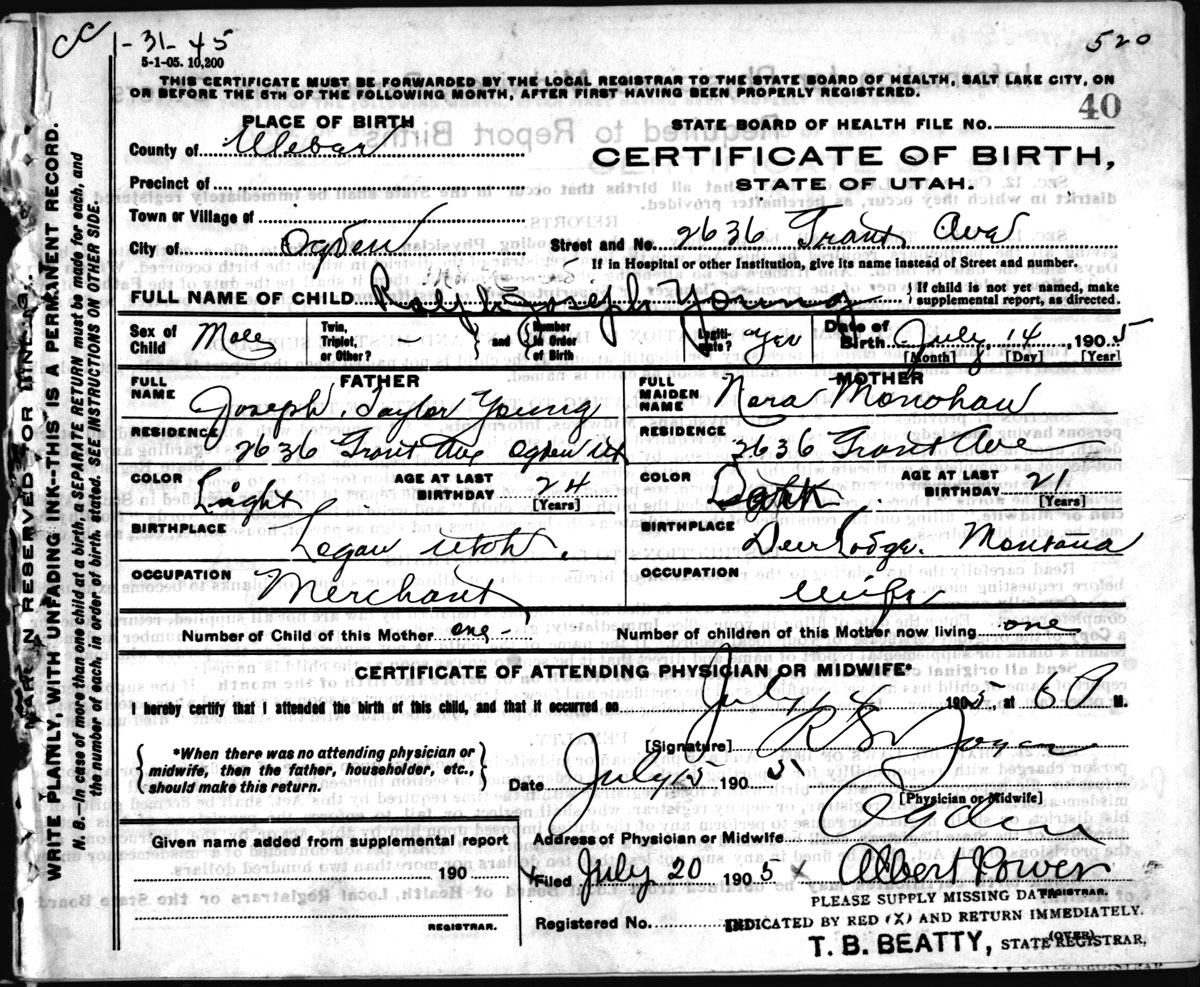 CC 1-31-45 520
5-1-05. 10,200
THIS CERTIFICATE MUST BE FORWARDED BY THE LOCAL REGISTRAR TO THE STATE BOARD OF HEALTH, SALT LAKE CITY, ON
OR BEFORE THE 5TH OF THE FOLLOWING MONTH, AFTER FIRST HAVING BEEN PROPERLY REGISTERED.
PLACE OF BIRTH
STATE BOARD OF HEALTH FILE No. 40
County of Weber
CERTIFICATE OF BIRTH,
Precinct of
STATE OF UTAH.
Town or Village of
City of Ogden Street and No. 2636 Grant Ave
If in Hospital or other Institution, give its name instead of Street and number.
FULL NAME OF CHILD. Ralph Joseph Young { If child is not yet named, make supplemental report, as directed.
Sex of Child Male Twin, Triplet, or Other? - } and { Number in Order of Birth Legiti-mate? Yes Date of Birth July, 14 1905
[Month] [Day] [Year]
FATHER
FULL NAME Joseph Taylor Young
RESIDENCE
2636 Grant Ave Ogden Ut
COLOR Light AGE AT LAST BIRTHDAY 24
[Years]
BIRTHPLACE
Logan Utah.
OCCUPATION
Merchant
MOTHER
FULL MAIDEN NAME Nora Monohan
RESIDENCE
2636 Grant Ave
COLOR AGE AT LAST BIRTHDAY 21
[Years]
BIRTHPLACE
Deer Lodge. Montana
OCCUPATION
wife
Number of Child of this Mother one - Number of children of this Mother now living one
CERTIFICATE OF ATTENDING PHYSICIAN OR MIDWIFE*
I hereby certify that I attended the birth of this child, and that it occurred on July 14 1905, at 6 A M.
{ *When there was no attending physician or
midwife, then the father, householder, etc.,
should make this return. }
[Signature] R S Joyce
Date July 15 1905
[Physician or Midwife]
Given name added from supplemental report
190
REGISTRAR.
Address of Physician or Midwife Ogden
x Filed July 20 1905 x Albert Power
REGISTRAR.
Registered No.
PLEASE SUPPLY MISSING DATA
INDICATED BY RED (X) AND RETURN IMMEDIATELY.
(OVER)
T. B. BEATTY, STATE REGISTRAR,
MARGIN RESERVED FOR BINDING.
WRITE PLAINLY, WITH UNFADING INK--THIS IS A PERMANENT RECORD.
N. B.--In case of more than one child at a birth, a SEPARATE RETURN must be made for each, and
the number of each, in order of birth, stated. SEE INSTRUCTIONS ON OTHER SIDE.